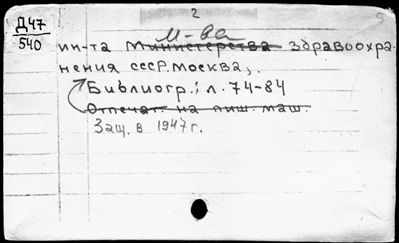 2
Д47
540
м-ва
ин-та Министерства здравоохра-
нения СССР. Москва,.
Библиогр.: л. 74-84
Отпечат. на пиш. маш.
Защ. в 1947 г.